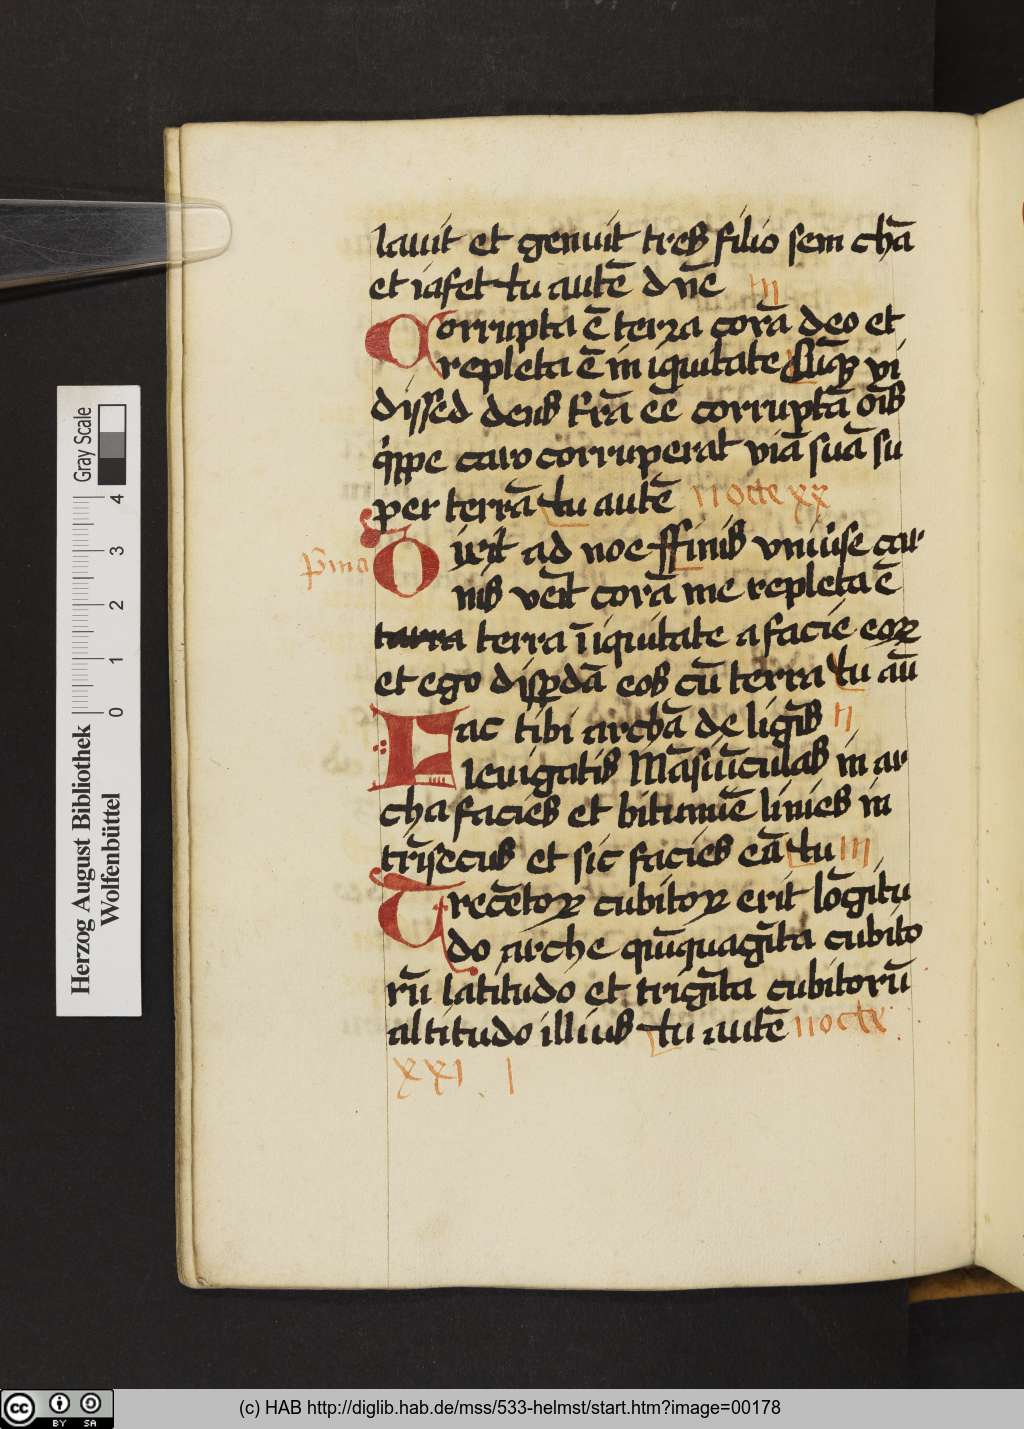 lauit et genuit tres filio sem chā
et iafet tu autē dn̄e III
Corrupta ē terra corā deo et
repleta ē in iquitate Cūqꝫ vi
dissed deus t̄rā eē corruptā oīs
q'ppe caro corruperat viā suā su
per terrā tu autē nocte xx
Dixit ad noe ffinis vniūse car
p̄ma
nis veīt corā me repleta ē
tarra terra īiquitate a facie eoꝝ
et ego disꝑdā eos cū terra tu aū
Fac tibi archā de ligīs II
leuigatis Māsiūculas in ar
cha facies et bitumīe linies in
tr̄īsecus et sic facies eā tu III
Trecētoꝝ cubitoꝝ erit lōgitu
do arche quīquagīta cubito
rū latitudo et trigīta cubitorū
altitudo illius tu autē nocte
XXI I
Herzog August Bibliothek
Wolfenbüttel
Gray Scale
0 1 2 3 4
(c) HAB http://diglib.hab.de/mss/533-helmst/start.htm?image=00178
cc BY SA